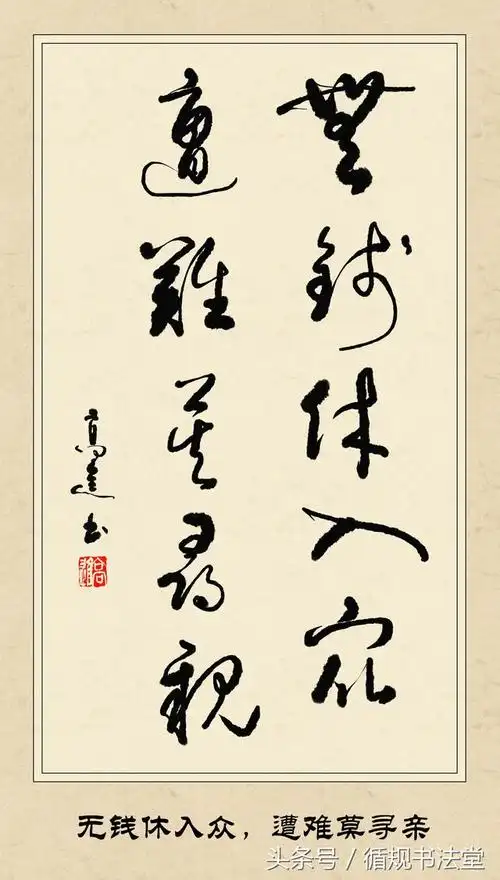 無錢休入眾
遭難莫尋親
无钱休入众，遭难莫寻亲
头条号／循规书法堂